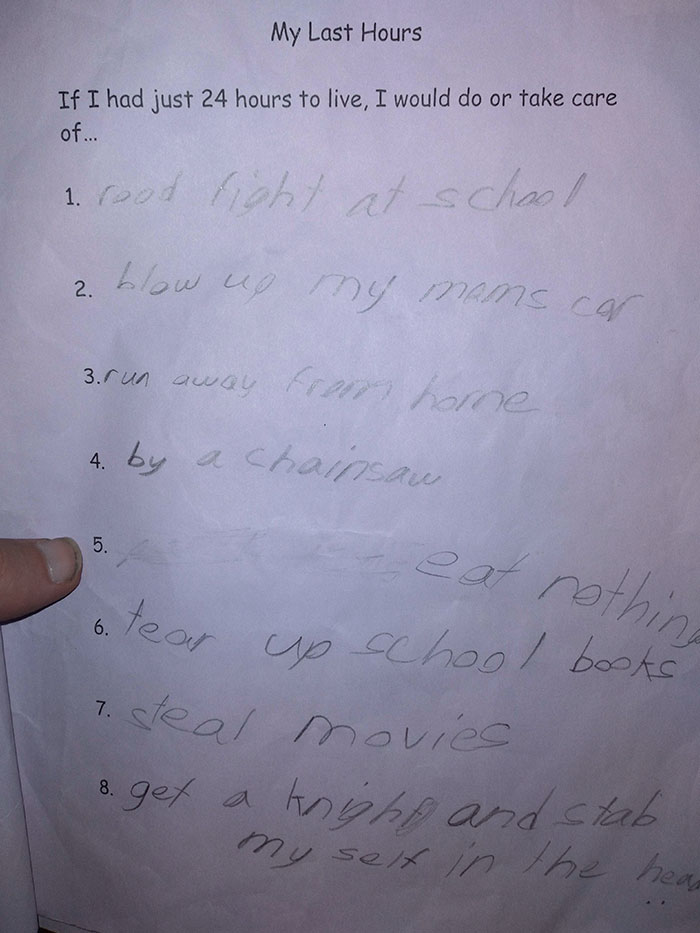 My Last Hours
If I had just 24 hours to live, I would do or take care
of...
1. food fight at school
2. blow up my moms car
3. run away from home
4. by a chainsaw
5. eat nothing
6. tear up school books
7. steal movies
8. get a knight and stab
my self in the head